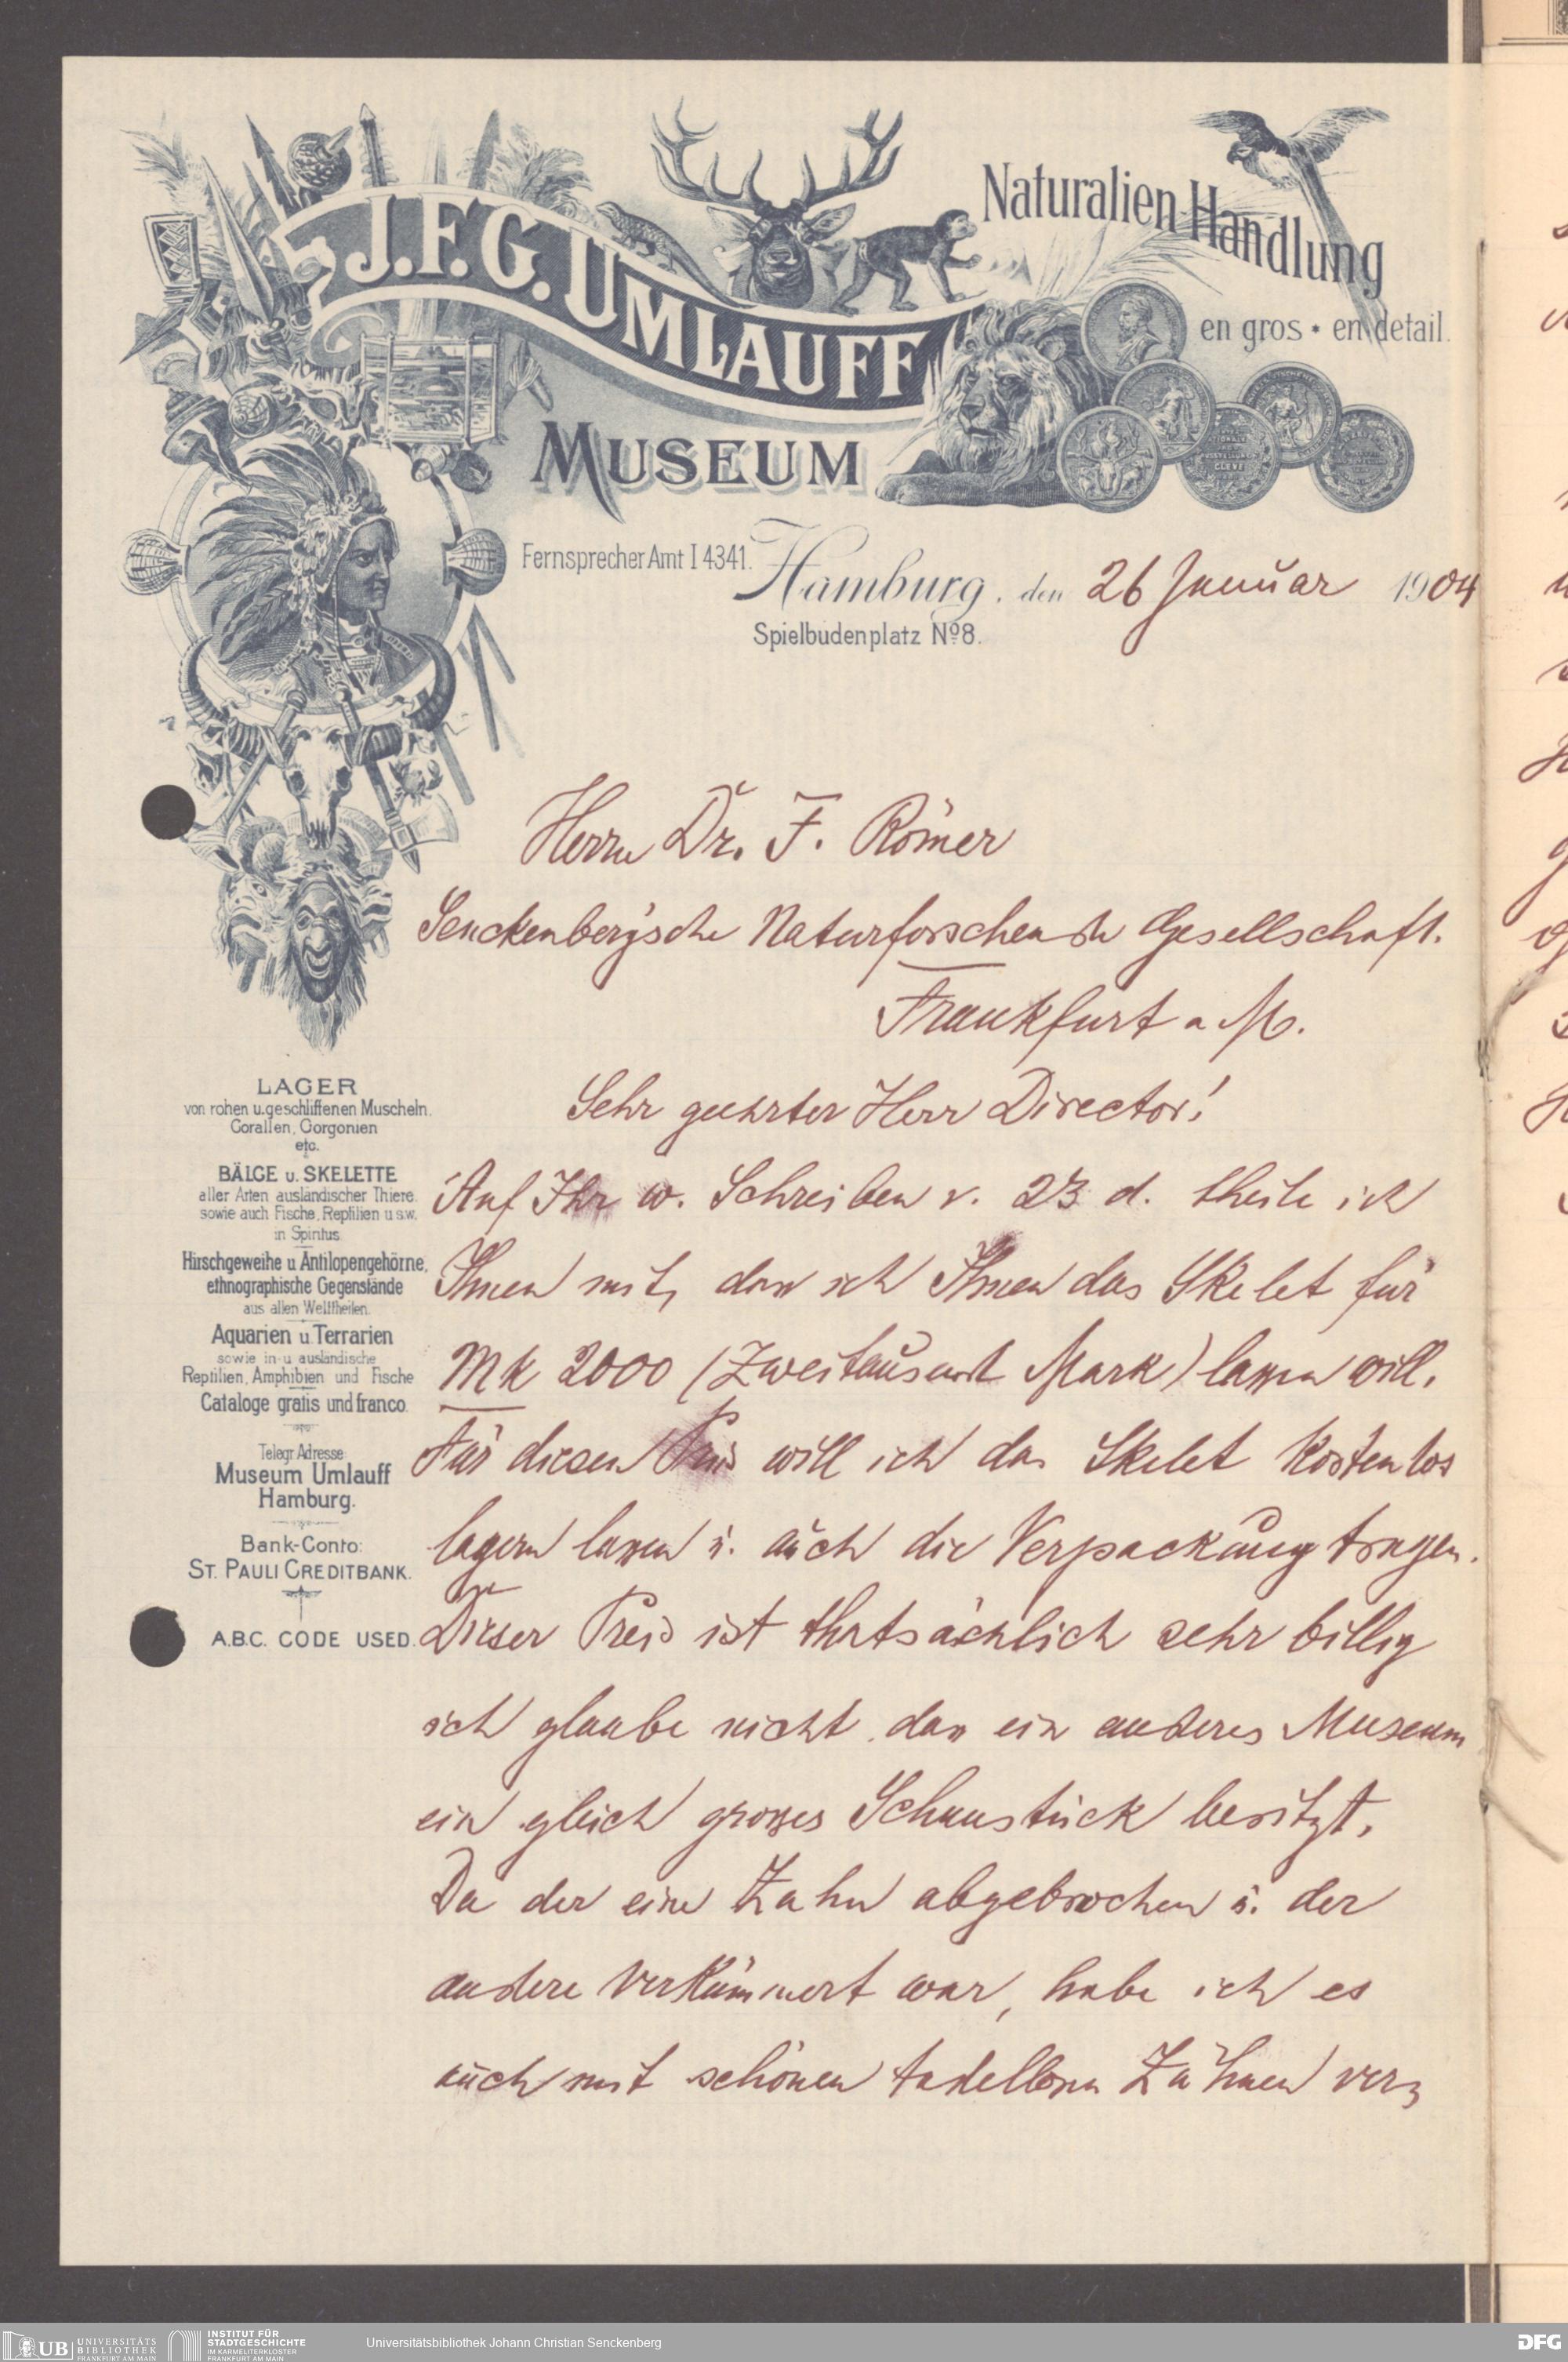 J.F.G. UMLAUFF
MUSEUM
Naturalien Handlung
en gros * en detail.
CLEVE
Fernsprecher Amt I 4341.
Hamburg, den 26 Januar 1904
Spielbudenplatz Nº 8.
Herrn Dr. F. Römer
Senckenberg'sche Naturforschende Gesellschaft.
Frankfurt a M.
Sehr geehrter Herr Director!
Auf Ihr w. Schreiben v. 23 d. theile ich
Ihnen mit, dass ich Ihnen das Skelet für
Mk 2000 (Zweitausend Mark) lassen will.
Für diesen Preis will ich das Skelet kostenlos
lagern lassen u. auch die Verpackung tragen.
Dieser Preis ist thatsächlich sehr billig
ich glaube nicht dass ein anderes Museum
ein gleich grosses Schaustück besitzt.
Da der eine Zahn abgebrochen u. der
andere verkümmert war, habe ich es
auch mit schönen tadellosen Zähnen ver=
LAGER
von rohen u. geschliffenen Muscheln.
Corallen, Gorgonien
etc.
BÄLGE u. SKELETTE
aller Arten ausländischer Thiere.
sowie auch Fische, Reptilien u.s.w.
in Spiritus
Hirschgeweihe u Antilopengehörne,
ethnographische Gegenstände
aus allen Welttheilen.
Aquarien u. Terrarien
sowie in- u ausländische
Reptilien, Amphibien und Fische
Cataloge gratis und franco.
Telegr. Adresse
Museum Umlauff
Hamburg.
Bank-Conto:
ST. PAULI CREDITBANK.
A.B.C. CODE USED.
UB UNIVERSITÄTS
BIBLIOTHEK
FRANKFURT AM MAIN
INSTITUT FÜR
STADTGESCHICHTE
IM KARMELITERKLOSTER
FRANKFURT AM MAIN
Universitätsbibliothek Johann Christian Senckenberg
DFG